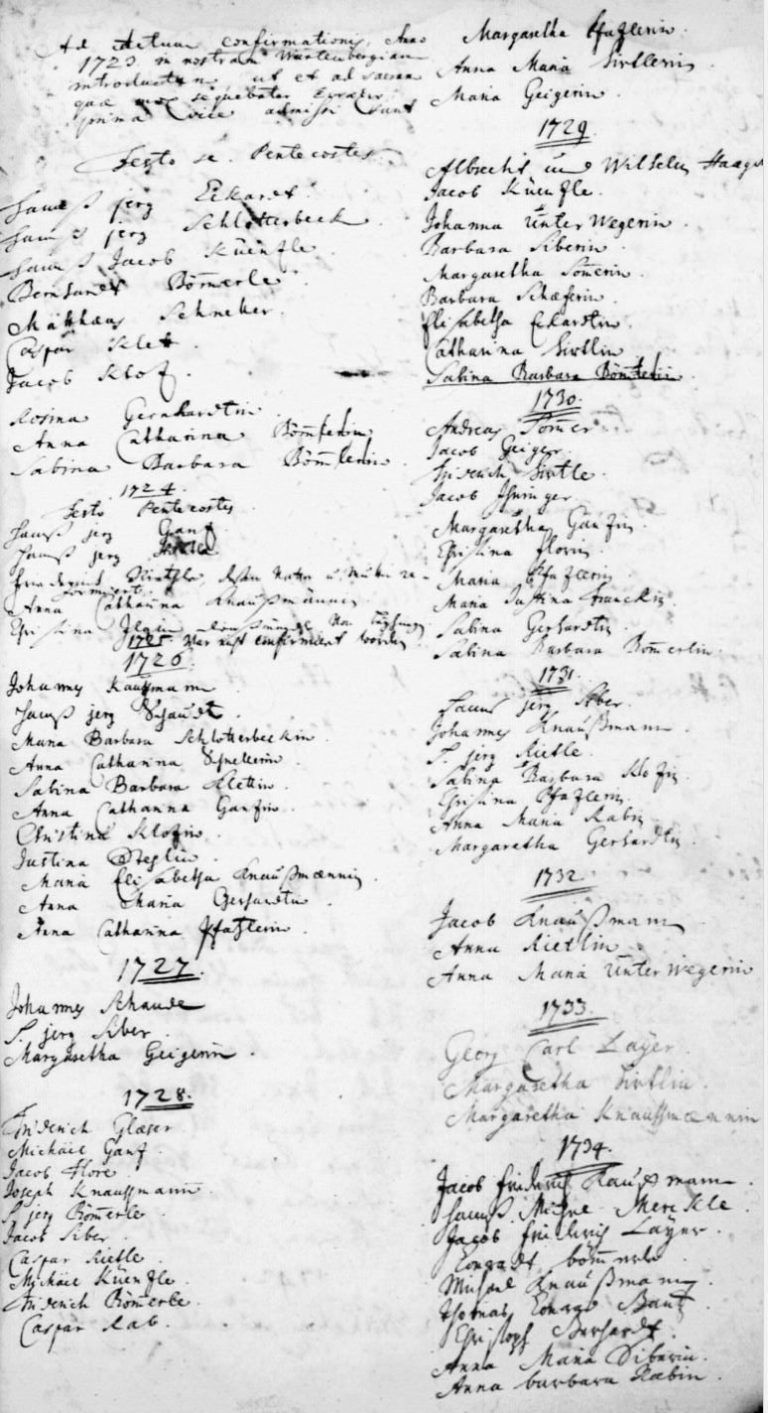 Ad Actum confirmationis, Anno
1723 in nostram Würtenbergiam
introductum, ut et ad sacram
quae mox sequebatur
prima vice admissi sunt
Festo Pentecostes
Hannß jerg Eckardt.
Hannß jerg Schlotterbeck
Hannß Jacob Küenfle
Bernhardt Bömerle
Matthaeus Schneker
Caspar Klett
Jacob Klotz
Rosina Gernhardtin
Anna Catharina
Sabina Barbara
1724.
Festo Pentecostes
Hannß jerg Ganß
Hannß jerg
Anna Catharina Knaußmännin
Christina
1725. War nicht confirmiert worden
1726.
Johannes Kaußmann
Hannß jerg Schaudt
Maria Barbara Schlotterbeckin
Anna Catharina
Sabina Barbara Klettin
Anna Catharina Ganßin
Christina Klotzin
Justina
Maria Elisabetha Knaußmännin
Anna Maria Gerhardtin
Anna Catharina Pfatzlerin
1727.
Johannes Schaude
J. jerg Siber
Margaretha Geigerin
1728.
Friderich Glaeser
Michael Ganß
Jacob Flore
Joseph Knaussmann
J. jerg Bömerle
Jacob Siber
Caspar Rietle
Michael Küenfle
Friderich Bömerle
Caspar Rab.
Margaretha Pfatzlerin
Anna Maria
Maria Geigerin
1729.
Albrecht und Wilhelm
Jacob Küenfle.
Johanna Unterwegerin
Barbara Siberin
Margaretha Somerin
Barbara Schaeferin
Elisabetha Eckardtin
Catharina
Sabina Barbara
1730.
Andreas Somer
Jacob Geiger
Friderich
Jacob
Margaretha Ganßin
Christina Florin
Maria Pfatzlerin
Maria Justina Franckin
Sabina Gerhardtin
Sabina Barbara Bömerlin
1731.
Hannß jerg Siber
Johannes Knaußmann
J. jerg Rietle
Sabina Barbara Klotzin
Christina Pfatzlerin
Anna Maria Rabin
Margaretha Gerhardtin
1732
Jacob Knaußmann
Anna Rietlin
Anna Maria Unterwegerin
1733.
Georg Carl Layer
Margaretha
Margaretha Knaussmaennin
1734.
Jacob Friderich Kaußmann
Hannß Michel Merckle
Jacob Friderich Layer
Conradt bömerle
Michael Knaußmann
Thomas Conrad Bantz
Christoph Gerhardt
Anna Maria Siberin
Anna barbara Rabin